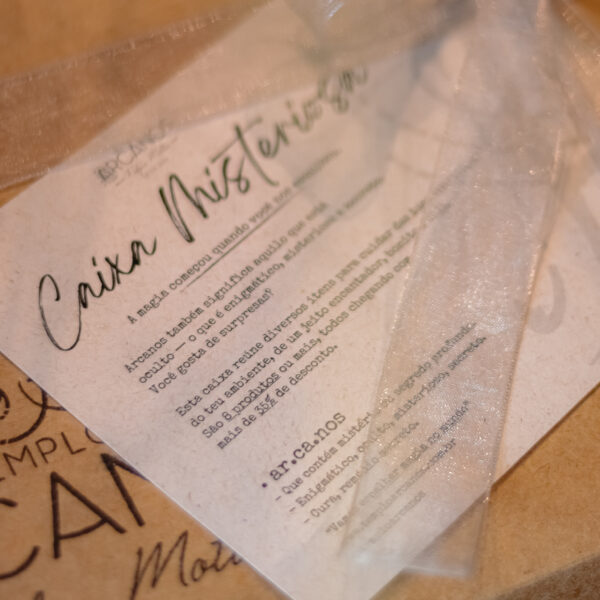 ARCANOS
Caixa Misteriosa
A magia começou quando você nos
Arcanos também significa aquilo que está
oculto — o que é enigmático, misterioso e
Você gosta de surpresas?
Esta caixa reúne diversos itens para cuidar de
do teu ambiente, de um jeito encantador,
São 8 produtos ou mais, todos chegando com
mais de 35% de desconto.
.ar.ca.nos
- Que contém mistério, segredo profundo.
- Enigmático, oculto, misterioso, secreto.
- Cura, remédio secreto.
magia no mundo"
EMPLO
CAN